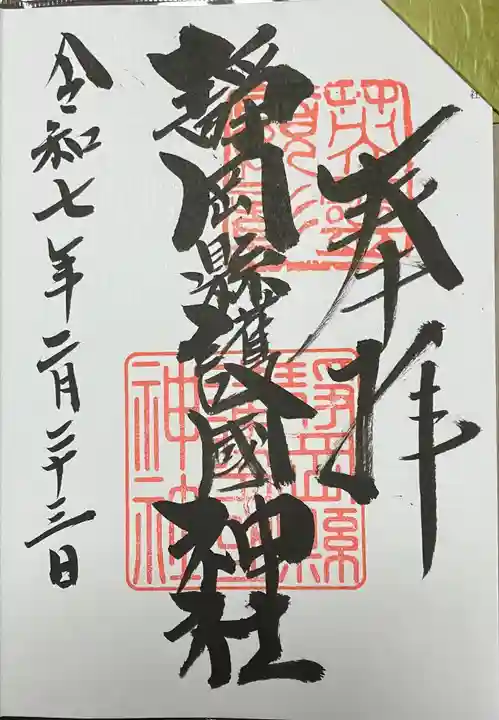 奉拝
靜岡縣護國神社
令和七年二月二十三日
靜岡縣
神社
社